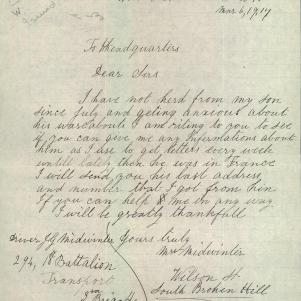 Mar 6, 1917
To Headquarters
Dear Sirs
I have not herd from my son
since July and geting anxious about
his wareabouts I am riting to you to see
if you can give me any informations about
him as I use to get letters every week
untill lately then he was in France
I will send you his last address
and number that I got from him
If you can help me in any way
I will be greatly thankfull
Driver J G Midwinter Yours truly
Mrs Midwinter
294, 18 Battalion
Wilson St
Transport
South Broken Hill
Brigade